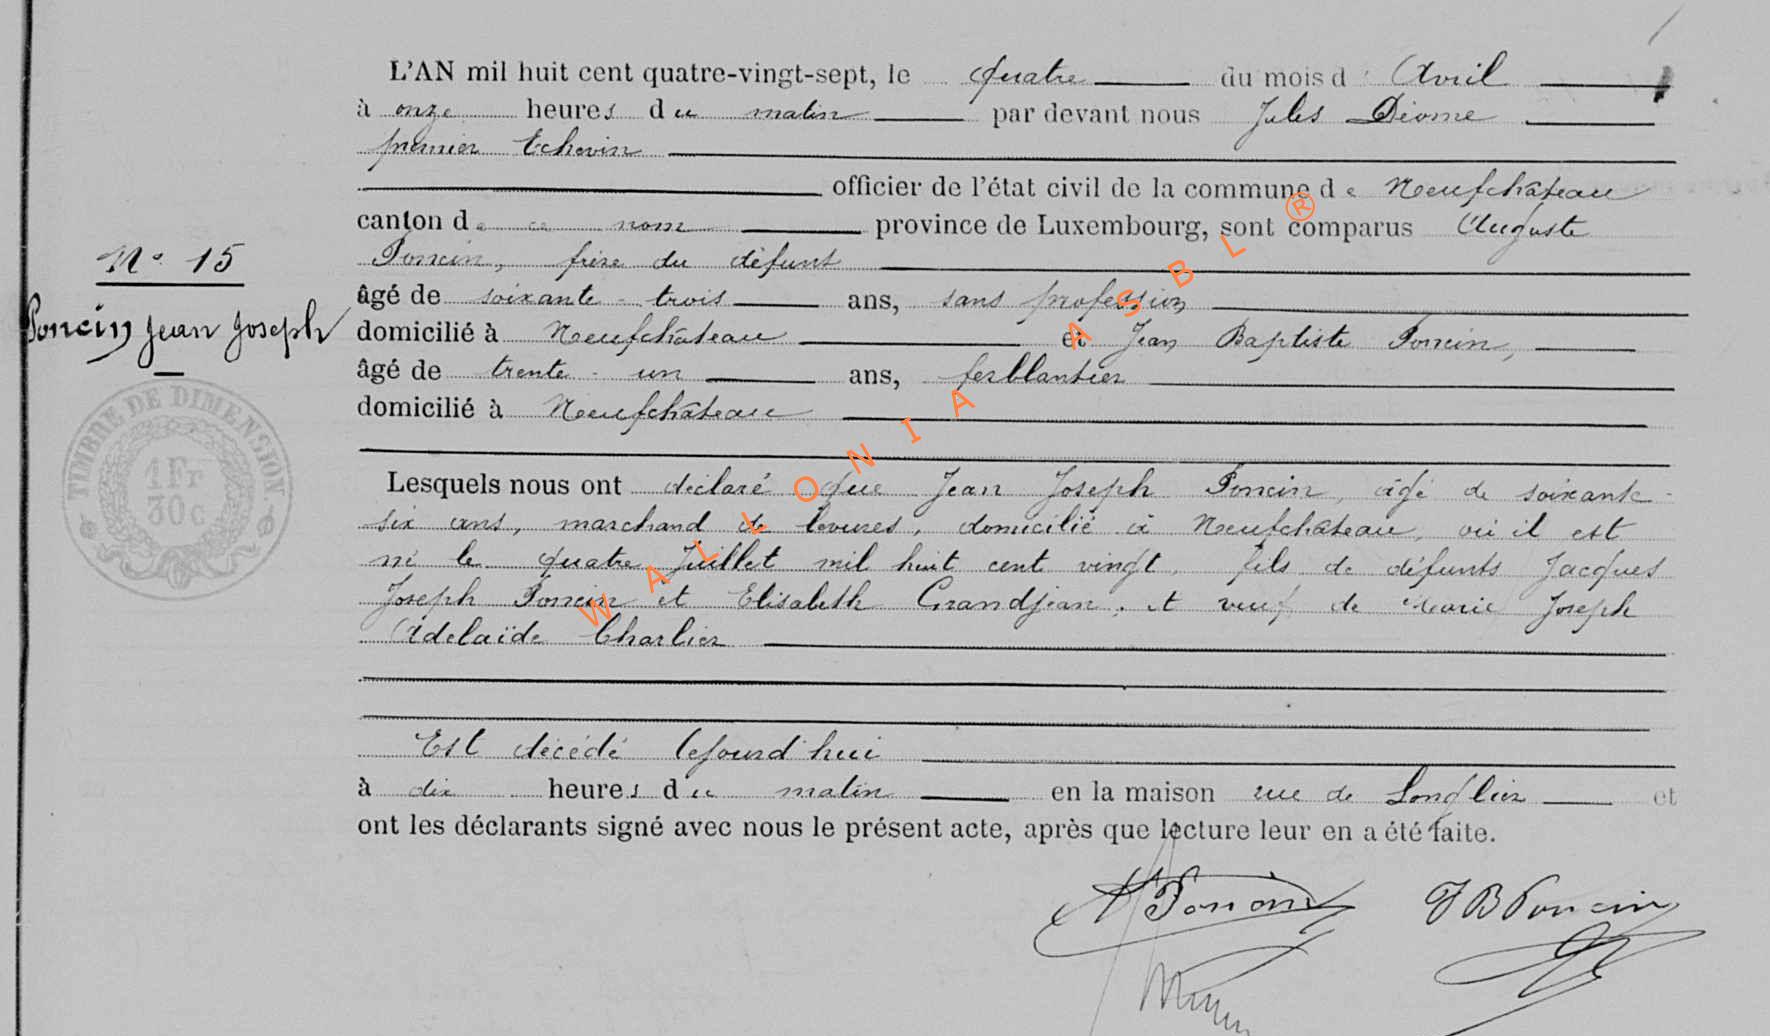 L'AN mil huit cent quatre-vingt-sept, le quatre du mois d'Avril
à onze heures du matin par devant nous Jules Diome
premier Echevin
officier de l'état civil de la commune de Neufchâteau
canton de ce nom province de Luxembourg, sont comparus Auguste
Poncin, frère du défunt
âgé de soixante-trois ans, sans profession
domicilié à Neufchâteau et Jean Baptiste Poncin,
âgé de trente-un ans, ferblantier
domicilié à Neufchâteau
N° 15
Poncin Jean Joseph
TIMBRE DE DIMENSION.
1 Fr
30 c
Lesquels nous ont déclaré que Jean Joseph Poncin, âgé de soixante-
six ans, marchand de levures, domicilié à Neufchâteau, où il est
né le quatre Juillet mil huit cent vingt, fils de défunts Jacques
Joseph Poncin et Elisabeth Grandjean, et veuf de Marie Joseph
Adelaïde Charlier
Est décédé cejourd'hui
à dix heures du matin en la maison rue de Longlier et
ont les déclarants signé avec nous le présent acte, après que lecture leur en a été faite.
A Poncin JB Poncin
WALLONIA ASBL ®